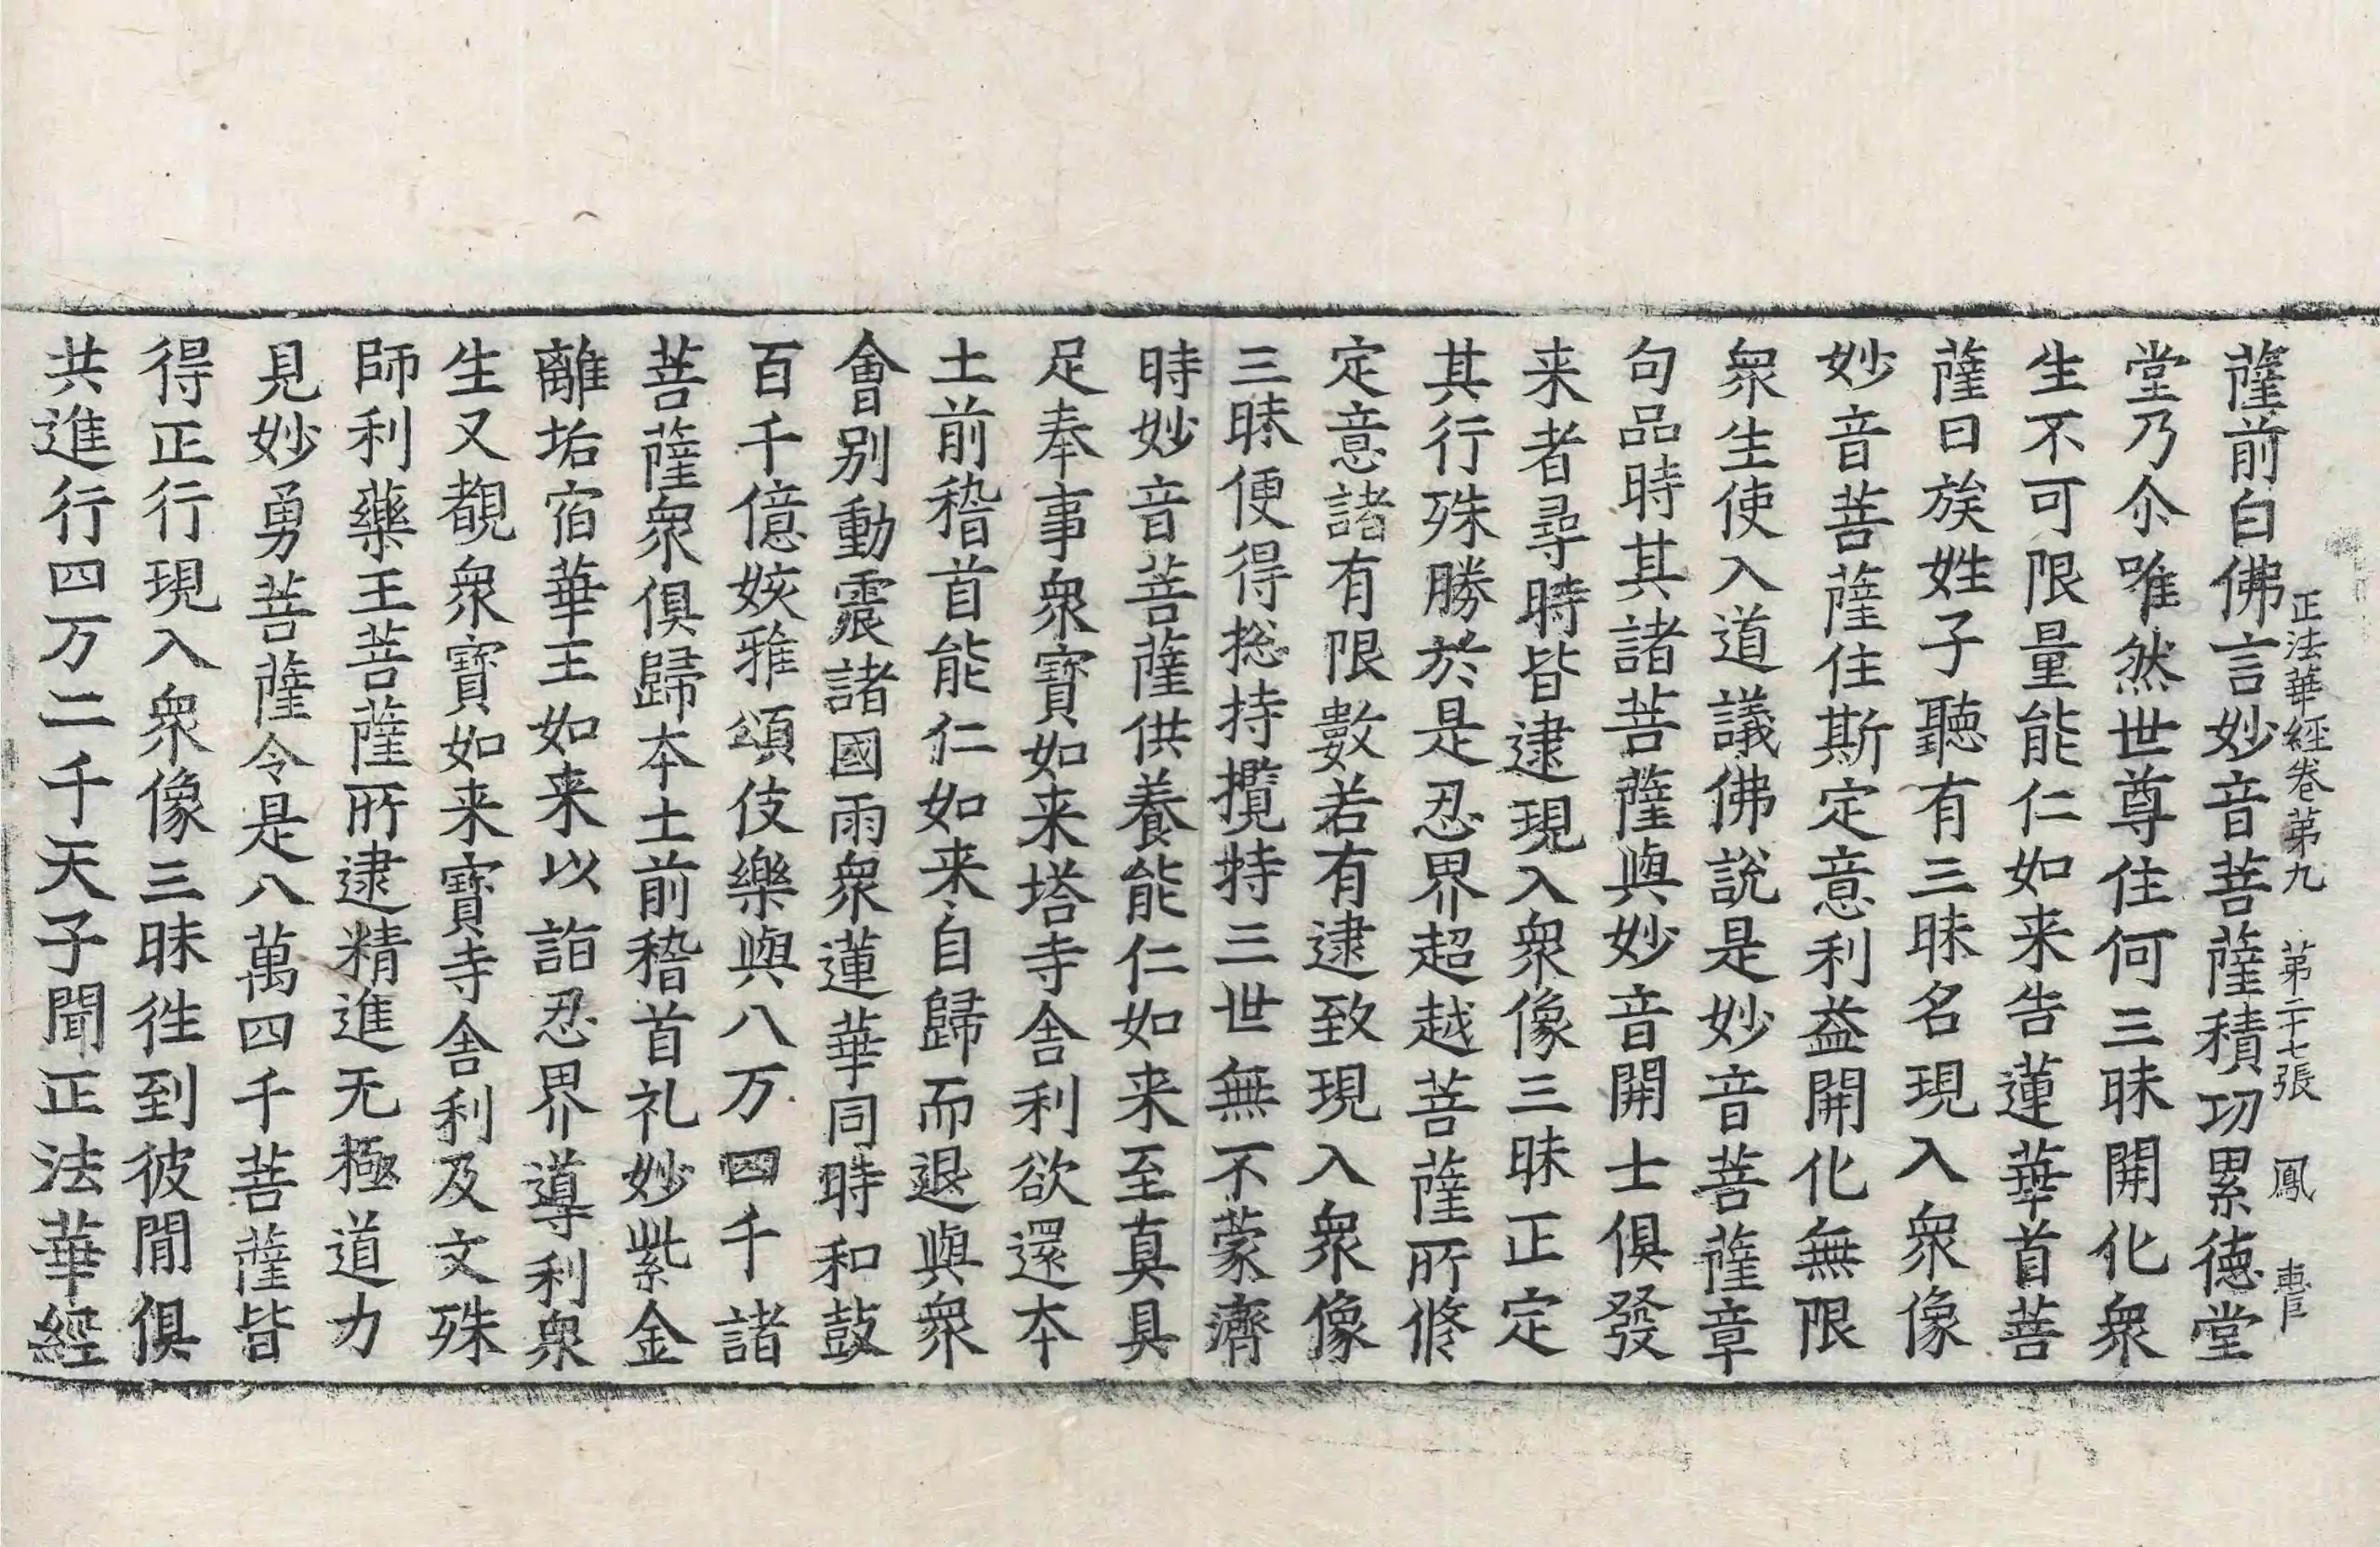 正法華經卷第九 第二十七張 鳳
薩前白佛言妙音菩薩積功累德堂
堂乃尒唯然世尊住何三昧開化衆
生不可限量能仁如来告蓮華首菩
薩曰族姓子聽有三昧名現入衆像
妙音菩薩住斯定意利益開化無限
衆生使入道議佛說是妙音菩薩章
句品時其諸菩薩與妙音開士俱發
来者尋時皆逮現入衆像三昧正定
其行殊勝於是忍界超越菩薩所修
定意諸有限數若有逮致現入衆像
三昧便得捴持攬持三世無不蒙濟
時妙音菩薩供養能仁如来至真具
足奉事衆寶如来塔寺舎利欲還本
土前稽首能仁如来自歸而退與衆
會別動震諸國雨衆蓮華同時和鼓
百千億姟雅頌伎樂與八万四千諸
菩薩衆俱歸本土前稽首礼妙紫金
離垢宿華王如来以詣忍界導利衆
生又覩衆寶如来寶寺舎利及文殊
師利藥王菩薩所逮精進无極道力
見妙勇菩薩令是八萬四千菩薩皆
得正行現入衆像三昧徃到彼間俱
共進行四万二千天子聞正法華經